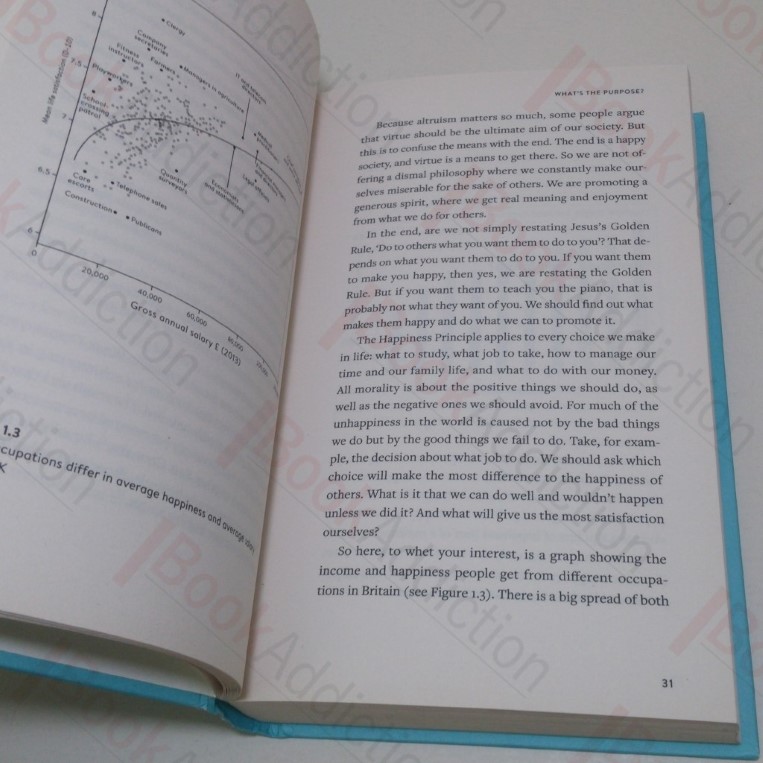 8
Clergy
Company
secretaries
Fitness
instructors
Farmers
Managers in agriculture
7.5
Playworkers
School-
crossing
patrol
Mean life satisfaction (0–10)
7
6.5
Care
escorts
Telephone sales
Quantity
surveyors
Construction
Publicans
6
0
20,000
40,000
60,000
80,000
Gross annual salary £ (2013)
1.3
cupations differ in average happiness and average
K
WHAT'S THE PURPOSE?
Because altruism matters so much, some people argue
that virtue should be the ultimate aim of our society. But
this is to confuse the means with the end. The end is a happy
society, and virtue is a means to get there. So we are not of-
fering a dismal philosophy where we constantly make our-
selves miserable for the sake of others. We are promoting a
generous spirit, where we get real meaning and enjoyment
from what we do for others.
In the end, are we not simply restating Jesus's Golden
Rule, 'Do to others what you want them to do to you'? That de-
pends on what you want them to do to you. If you want them
to make you happy, then yes, we are restating the Golden
Rule. But if you want them to teach you the piano, that is
probably not what they want of you. We should find out what
makes them happy and do what we can to promote it.
The Happiness Principle applies to every choice we make
in life: what to study, what job to take, how to manage our
time and our family life, and what to do with our money.
All morality is about the positive things we should do, as
well as the negative ones we should avoid. For much of the
unhappiness in the world is caused not by the bad things
we do but by the good things we fail to do. Take, for exam-
ple, the decision about what job to do. We should ask which
choice will make the most difference to the happiness of
others. What is it that we can do well and wouldn't happen
unless we did it? And what will give us the most satisfaction
ourselves?
So here, to whet your interest, is a graph showing the
income and happiness people get from different occupa-
tions in Britain (see Figure 1.3). There is a big spread of both
31
BookAddiction